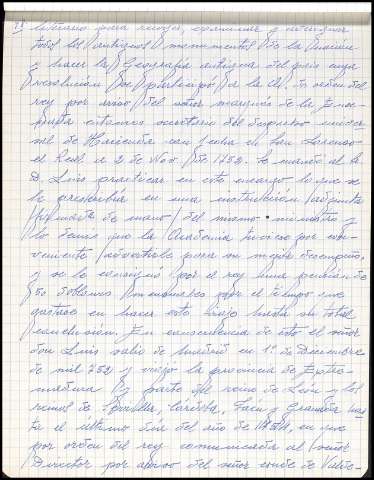 literario para recoger, examinar y averiguar
todos los antiguos monumentos de la Nación
y hacer la Geografía antigua del país cuya
resolución se participó a la A. de orden del
rey por aviso del señor marqués de la Ense-
nada entonces secretario del despacho univer-
sal de Hacienda con fecha de San Lorenzo
el Real a 2 de Nov. de 1752. Se mandó al S.
D. Luis practicar en este encargo lo que se
le prescribía en una instrucción adjunta
firmada de mano del mismo ministro y
lo demás que la Academia tuviese por con-
veniente advertirle para su mejor desempeño,
y se le consignó por el rey una pensión de
50 doblones mensuales por el tiempo que
gastase en hacer este viaje hasta su total
conclusión. En consecuencia de esto el señor
don Luis salió de Madrid en 1º de Diciembre
de mil 752 y viajó la provincia de Extre-
madura y parte del reino de León y los
reinos de Sevilla, Córdoba, Jaén y Granada has-
ta el último día del año de, en que
por orden del rey comunicada al señor
Director por aviso del señor conde de Valde-